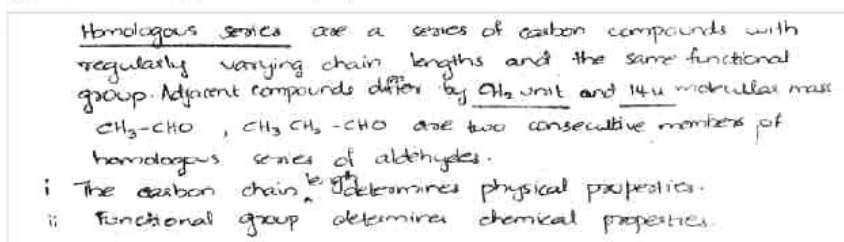 Homologous series are a series of carbon compounds with
regularly varying chain lengths and the same functional
group. Adjacent compounds differ by CH₂ unit and 14u molecular mass
CH₃-CHO , CH₃ CH₂ -CHO are two consecutive members of
homologous series of aldehydes.
i The carbon chain length determines physical properties.
ii Functional group determines chemical properties.